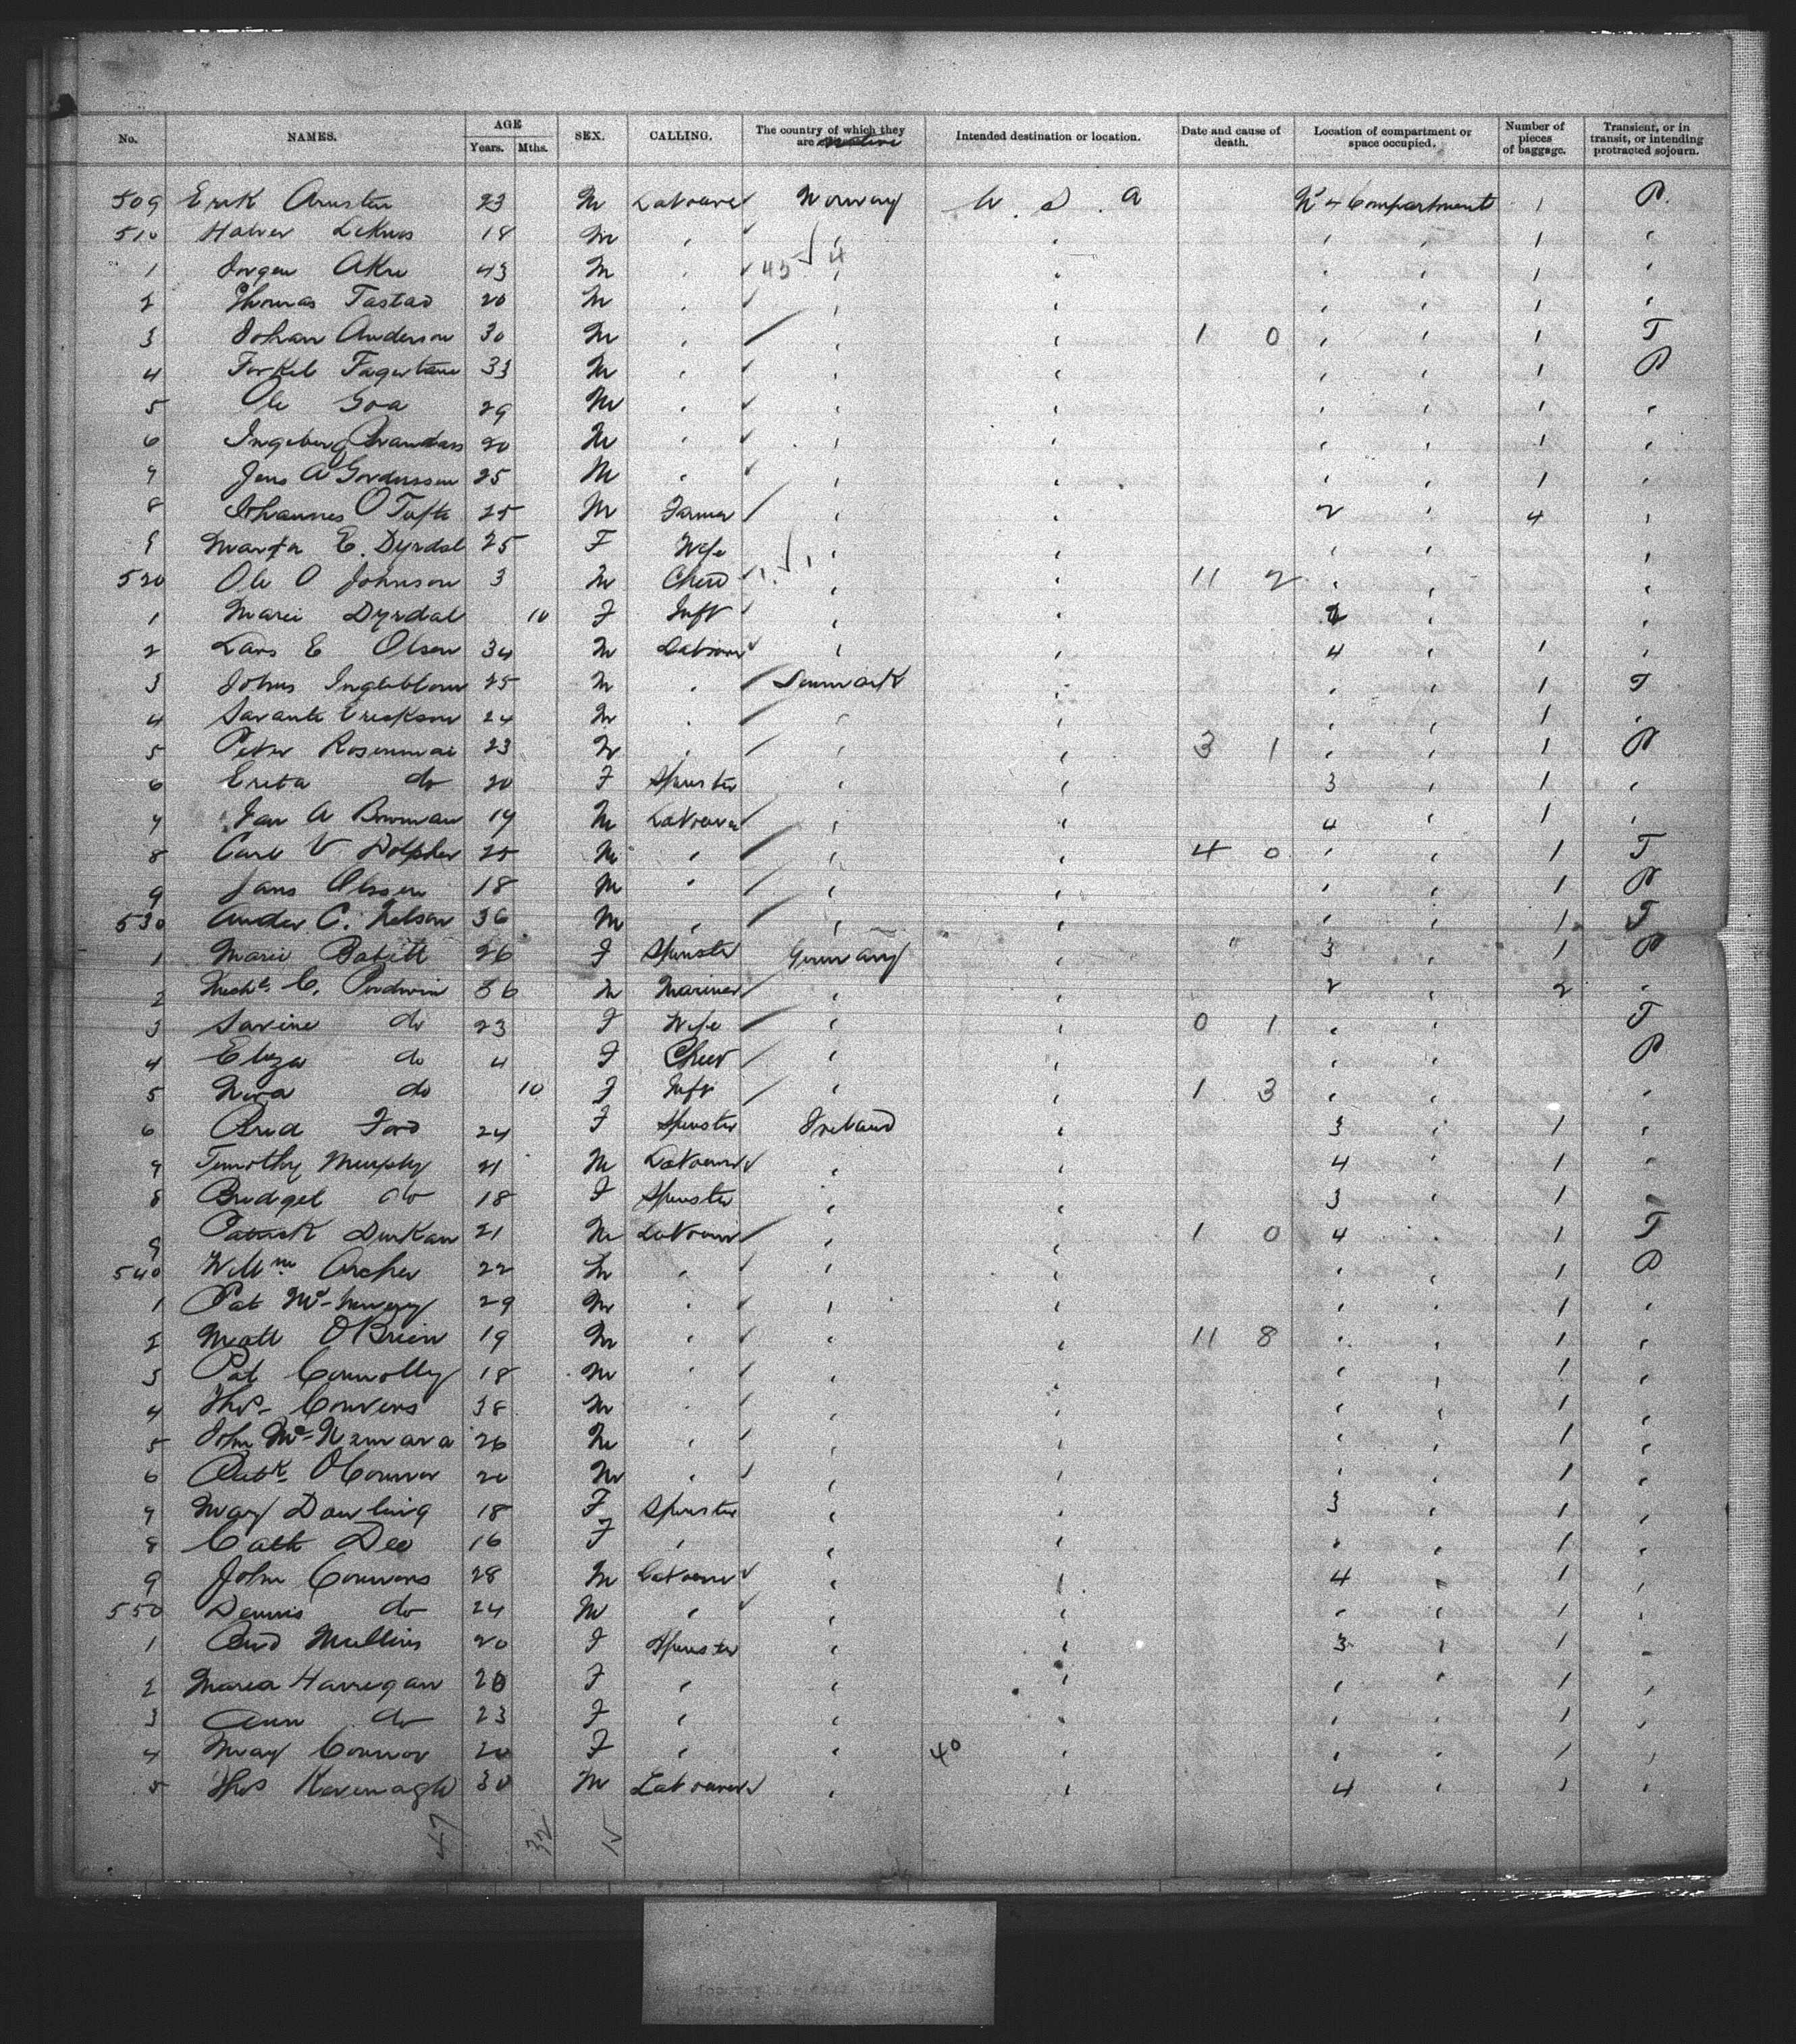 No. NAMES. AGE Years. Mths. SEX. CALLING. The country of which they are native Intended destination or location. Date and cause of death. Location of compartment or space occupied. Number of pieces of baggage. Transient, or in transit, or intending protracted sojourn.
509 Erik 23 M Labourer Norway U. S. A No 4 Compartment 1 P.
510 Halver 18 M , , , , , 1 ,
45 4
1 Jorgen Akre 43 M , , , , , 1 ,
2 Thomas Tastad 20 M , , , , , 1 ,
3 Johan Anderson 30 M , , , 1 0 , , 1 T
4 Torkel 33 M , , , , , 1 P
5 Ole Goa 29 M , , , , , 1 ,
6 Ingeborg 20 M , , , , , 1 ,
7 Jens A 25 M , , , , , 1 ,
8 Johannes O Tufte 25 M Farmer , , 2 , 4 ,
9 Marta E. Dyrdal 25 F Wife , , , , ,
520 Ole O Johnson 3 M Child , , 11 2 , , ,
1 Marie Dyrdal 10 F Inft , , 2 , ,
2 Lars E Olsen 34 M Labourer , , 4 , 1 ,
3 Johns 25 M , Denmark , , , 1 T
4 Erickson 24 M , , , , , 1 ,
5 Peter 23 M , , , 3 1 , , 1 P
6 do 20 F Spinster , , 3 , 1 ,
7 Jan A Bowman 19 M Labourer , , 4 , 1 ,
8 Carl V 25 M , , , 4 0 , , 1 T
9 Jans Olssen 18 M , , , , , 1 P
530 Ander C. Nelson 36 M , , , , , 1 T
1 Marie 26 F Spinster Germany , 3 , 1 P
2 C. 36 M Mariner , , 2 , 2 ,
3 Savine do 23 F Wife , , 0 1 , , T
4 Eliza do 4 F Child , , , , P
5 do 10 F Inft , , 1 3 , , ,
6 Brid Ford 24 F Spinster Ireland , 3 , 1 ,
7 Timothy Murphy 21 M Labourer , , 4 , 1 ,
8 Bridget do 18 F Spinster , , 3 , 1 ,
9 Patrick Durkan 21 M Labourer , , 1 0 4 , 1 T
540 Willm Archer 22 M , , , , , 1 P
1 Pat 29 M , , , , , 1 ,
2 Matt OBrien 19 M , , , 11 8 , , 1 ,
3 Pat Connolly 18 M , , , , , 1 ,
4 Thos Convens 38 M , , , , , 1 ,
5 John Mc-Namara 26 M , , , , , 1 ,
6 Patk OConnor 20 M , , , , , 1 ,
7 Mary Dowling 18 F Spinster , , 3 , 1 ,
8 Cath Deo 16 F , , , , , 1 ,
9 John Connors 28 M Labourer , , 4 , 1 ,
550 Dennis do 24 M , , , , , 1 ,
1 Brid Mullins 20 F Spinster , , 3 , 1 ,
2 Maria Harregan 20 F , , , , , 1 ,
3 Ann do 23 F , , , , , 1 ,
4 Mary Connor 20 F , , 40 , , , 1 ,
5 Thos Kavenagh 30 M Labourer , , 4 , 1 ,
47 32 15